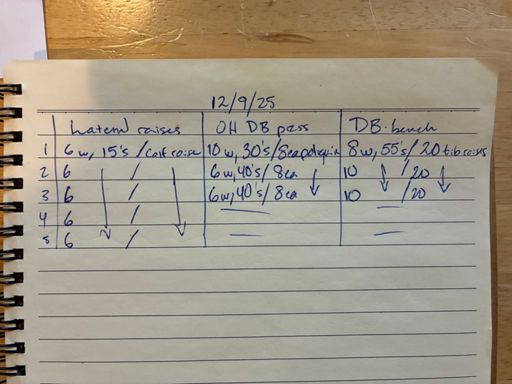 12/9/25
Lateral raises OH DB press DB bench
1 6 w, 15's / calf raise 10 w, 30's / 8ea 8 w, 55's / 20 tib raises
2 6 / 6 w, 40's / 8ea 10 / 20
3 6 / 6 w, 40's / 8ea 10 / 20
4 6 / — —
5 6 / — —